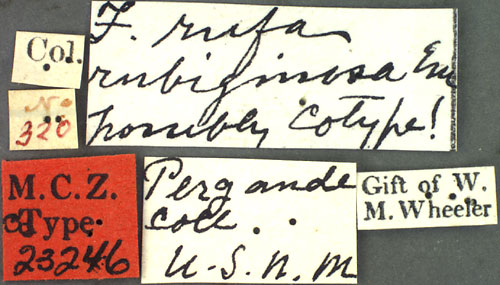 Col.
No
320
F. rufa
rubiginosa Em
possibly cotype!
M.C.Z.
coType
23246
Pergande
coll. .
U.S.N.M
Gift of W.
M. Wheeler